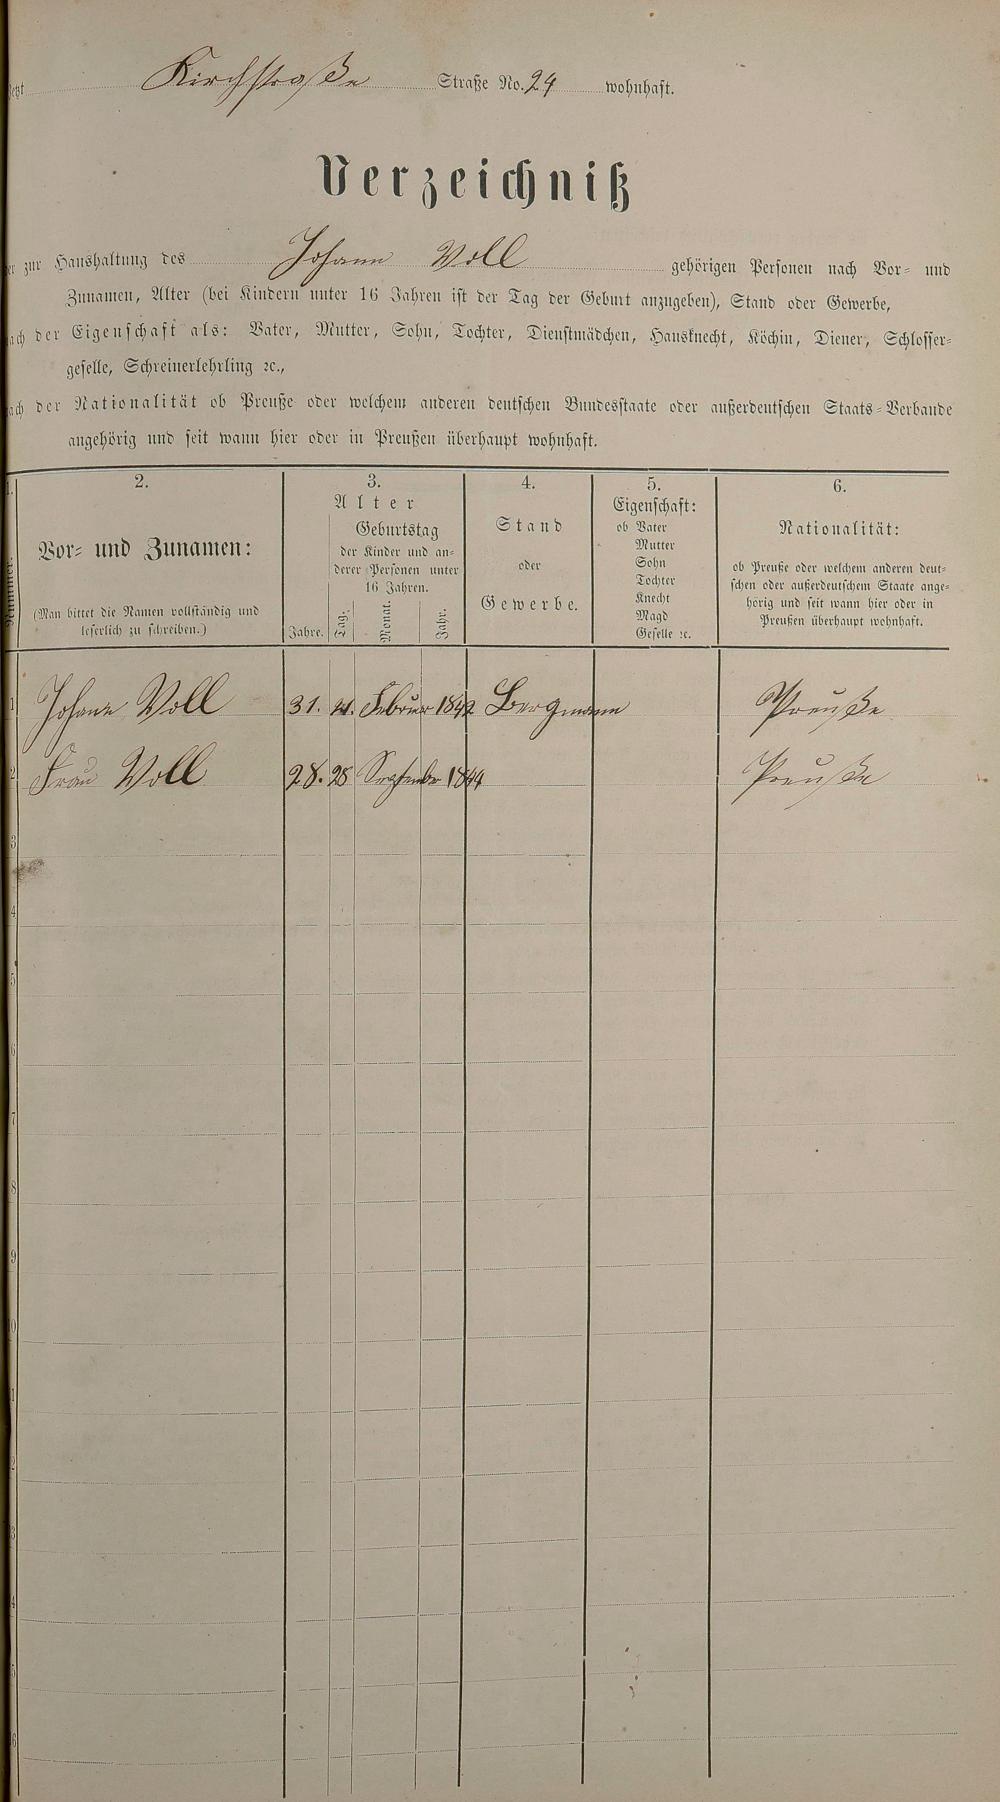 Kirchstraße Straße No. 24 wohnhaft.
Verzeichniß
zur Haushaltung des Johann Voll gehörigen Personen nach Vor- und
Zunamen, Alter (bei Kindern unter 16 Jahren ist der Tag der Geburt anzugeben), Stand oder Gewerbe,
nach der Eigenschaft als: Vater, Mutter, Sohn, Tochter, Dienstmädchen, Hausknecht, Köchin, Diener, Schlosser-
geselle, Schreinerlehrling ꝛc.,
nach der Nationalität ob Preuße oder welchem anderen deutschen Bundesstaate oder außerdeutschen Staats-Verbande
angehörig und seit wann hier oder in Preußen überhaupt wohnhaft.
1.
Nummer.
2.
Vor- und Zunamen:
(Man bittet die Namen vollständig und
leserlich zu schreiben.)
3.
Alter
Geburtstag
der Kinder und an-
derer Personen unter
16 Jahren.
Jahre. Tag. Monat. Jahr.
4.
Stand
oder
Gewerbe.
5.
Eigenschaft:
ob Vater
Mutter
Sohn
Tochter
Knecht
Magd
Geselle ꝛc.
6.
Nationalität:
ob Preuße oder welchem anderen deut-
schen oder außerdeutschem Staate ange-
hörig und seit wann hier oder in
Preußen überhaupt wohnhaft.
1 Johann Voll 31. Februar 1842 Bergmann Preuße
2 Frau Voll 28. 28 September 1844 Preuße
3
4
5
6
7
8
9